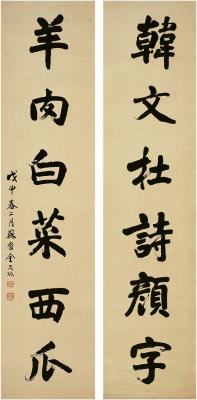 韓文杜詩顔字
羊肉白菜西瓜
戊申春二月蘇